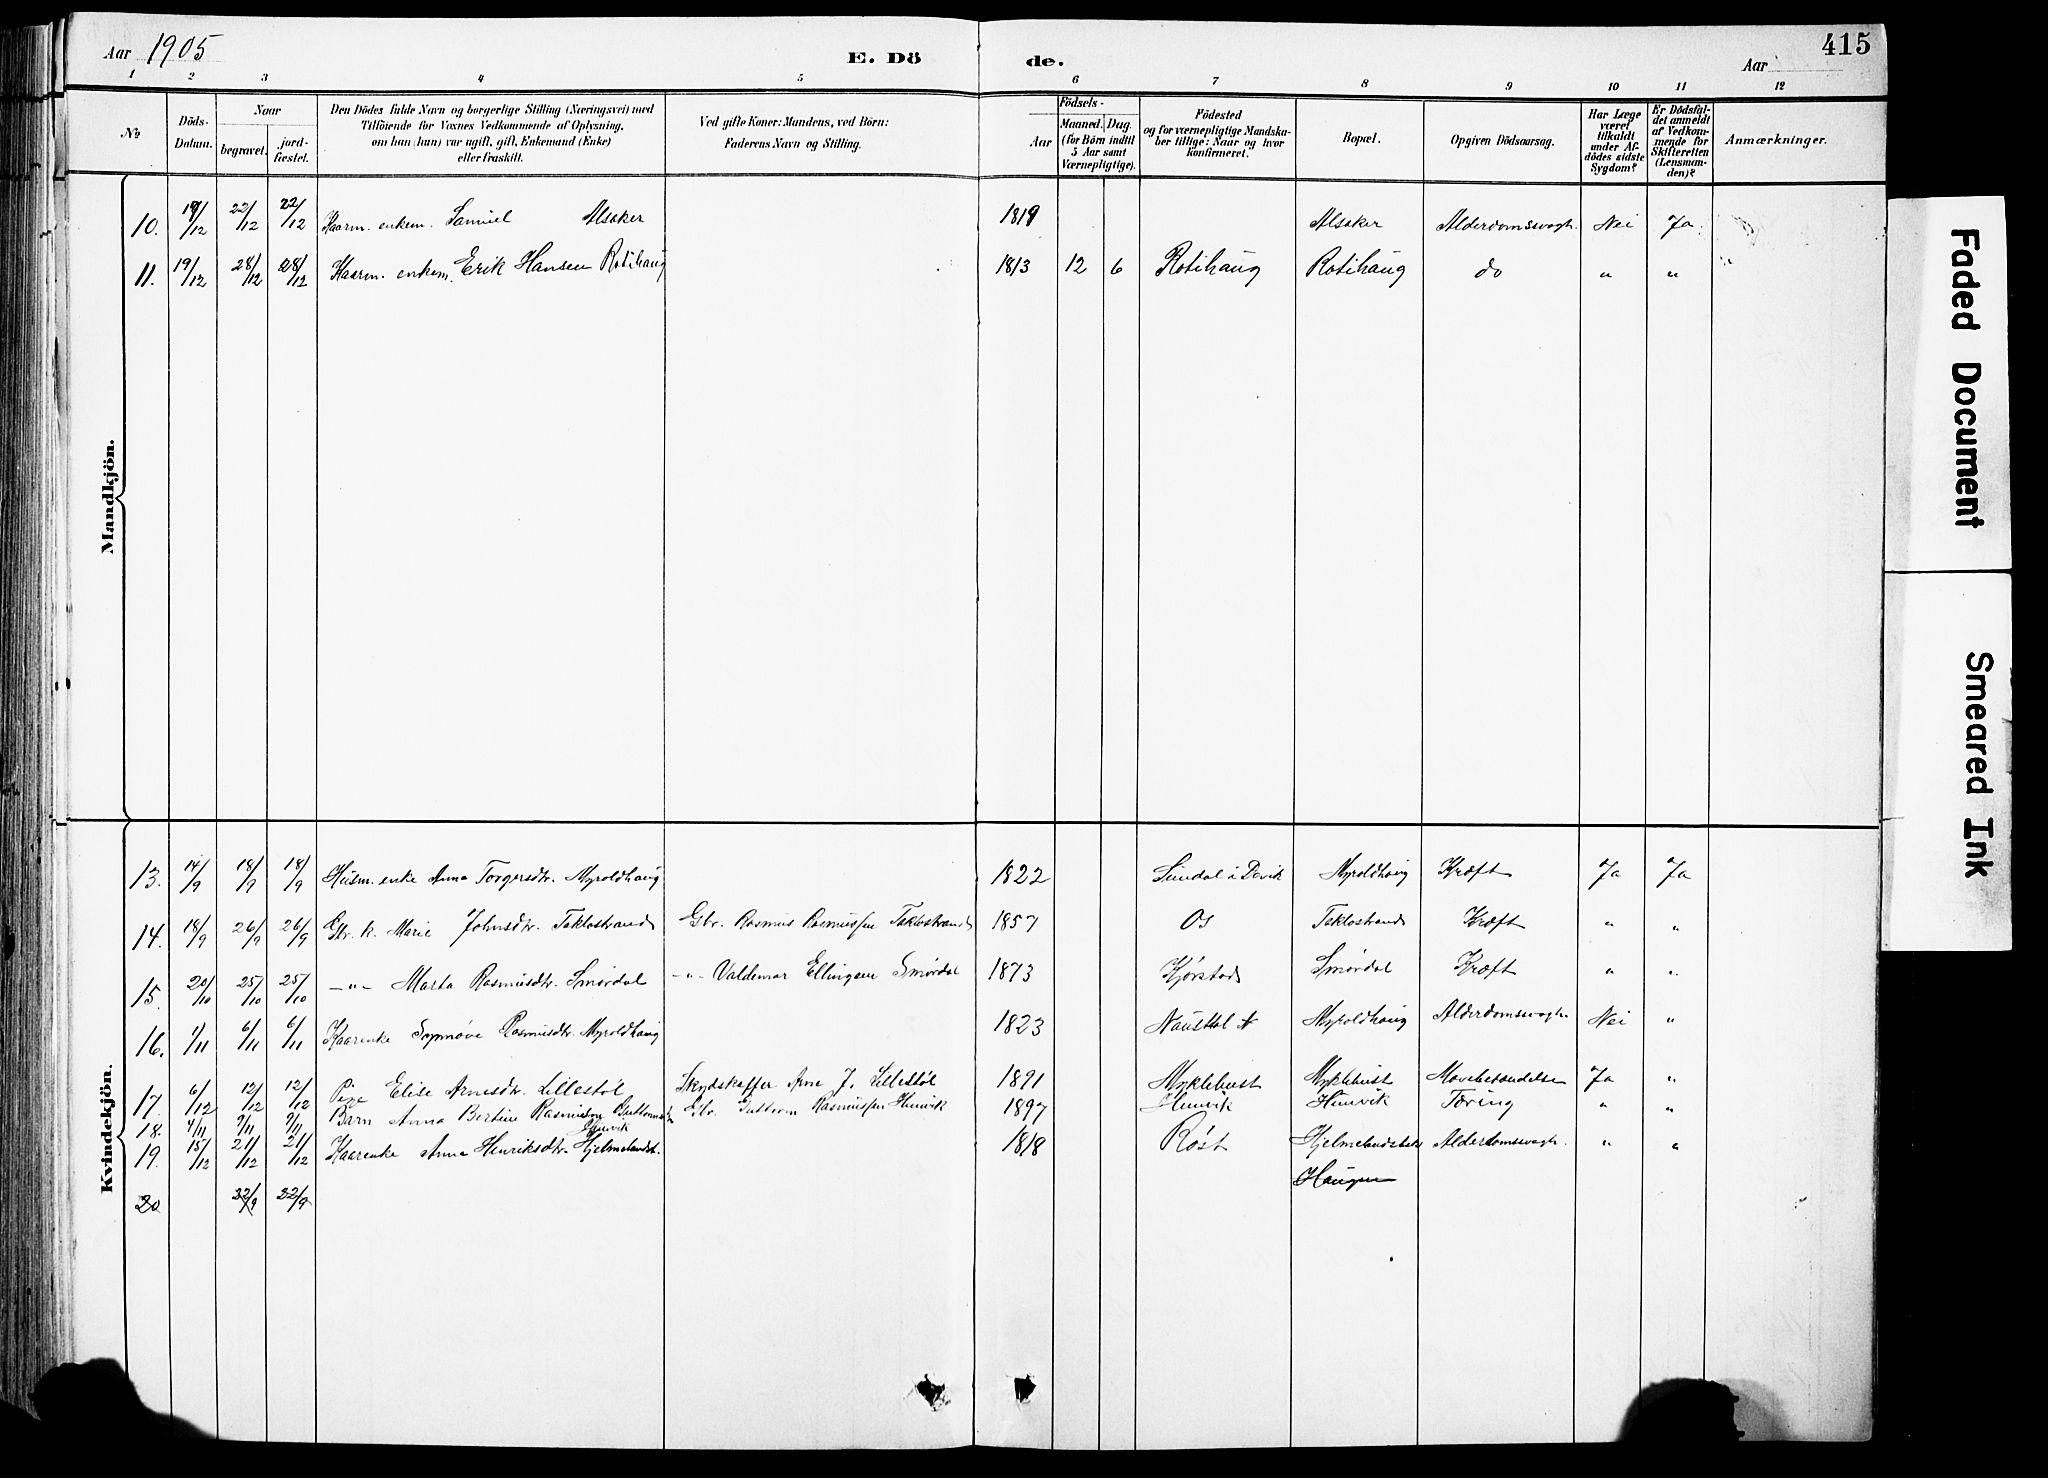 Aar 1905 E. Dö de. Aar 415
1 2 3 4 5 6 7 8 9 10 11 12
No
Döds-Datum.
Naar
begravet.
jord-fæstet.
Den Dödes fulde Navn og borgerlige Stilling (Næringsvei) med
Tilföiende for Voxnes Vedkommende af Oplysning,
om han (hun) var ugift, gift, Enkemand (Enke)
eller fraskilt.
Ved gifte Koner: Mandens, ved Börn:
Faderens Navn og Stilling.
Födsels-
Aar
Maaned. Dag.
(for Börn indtil
5 Aar samt
Værnepligtige).
Födested
og for værnepligtige Mandska-
ber tillige: Naar og hvor
konfirmeret.
Bopæl.
Opgiven Dödsaarsag.
Har Læge
været
tilkaldt
under Af-
dödes sidste
Sygdom?
Er Dödsfal-
det anmeldt
af Vedkom-
mende for
Skifteretten
(Lensman-
den)?
Anmærkninger.
Mandkjön.
10. 19/12 22/12 22/12 Kaarm. enkem. Samuel Alsaker 1819 Alsaker Alderdomssvagh. Nei Ja
11. 19/12 28/12 28/12 Kaarm. enkem. Erik Hansen Rotihaug 1813 12 6 Rotihaug Rotihaug do " "
Kvindekjön.
13. 14/9 18/9 18/9 Husm. enke Anna Torgersdtr. Myroldhaug 1822 Sundal i Davik Myroldhaug Kræft Ja Ja
14. 18/9 26/9 26/9 Gbr. k. Marie Johnsdtr. Taklostrand Gbr. Rasmus Rasmussen Taklostrand 1857 Os Taklostrand Kræft " "
15. 20/10 25/10 25/10 -"- Marta Rasmusdtr. Smørdal -"- Valdemar Ellingsen Smørdal 1873 Kjørstad Smørdal Kræft " "
16. 1/11 6/11 6/11 Kaarenke Synnøve Rasmusdtr. Myroldhaug 1823 Myroldhaug Alderdomssvagh. Nei "
17. 6/12 12/12 12/12 Pige Elise Arnesdtr. Lillestøl Skydskaffer Arne J. Lillestøl 1891 Myklebust Myklebust Ja "
18. 4/11 9/11 9/11 Barn Anna Bertine Rasmusen Hunvik Gbr. Guttorm Rasmussen Hunvik 1897 Hunvik Hunvik Tæring " "
19. 15/12 21/12 21/12 Kaarenke Anna Henriksdtr. Hjelmelandst. 1818 Røst Alderdomssvagh. " "
Haugen
20 22/9 22/9
Faded Document
Smeared Ink